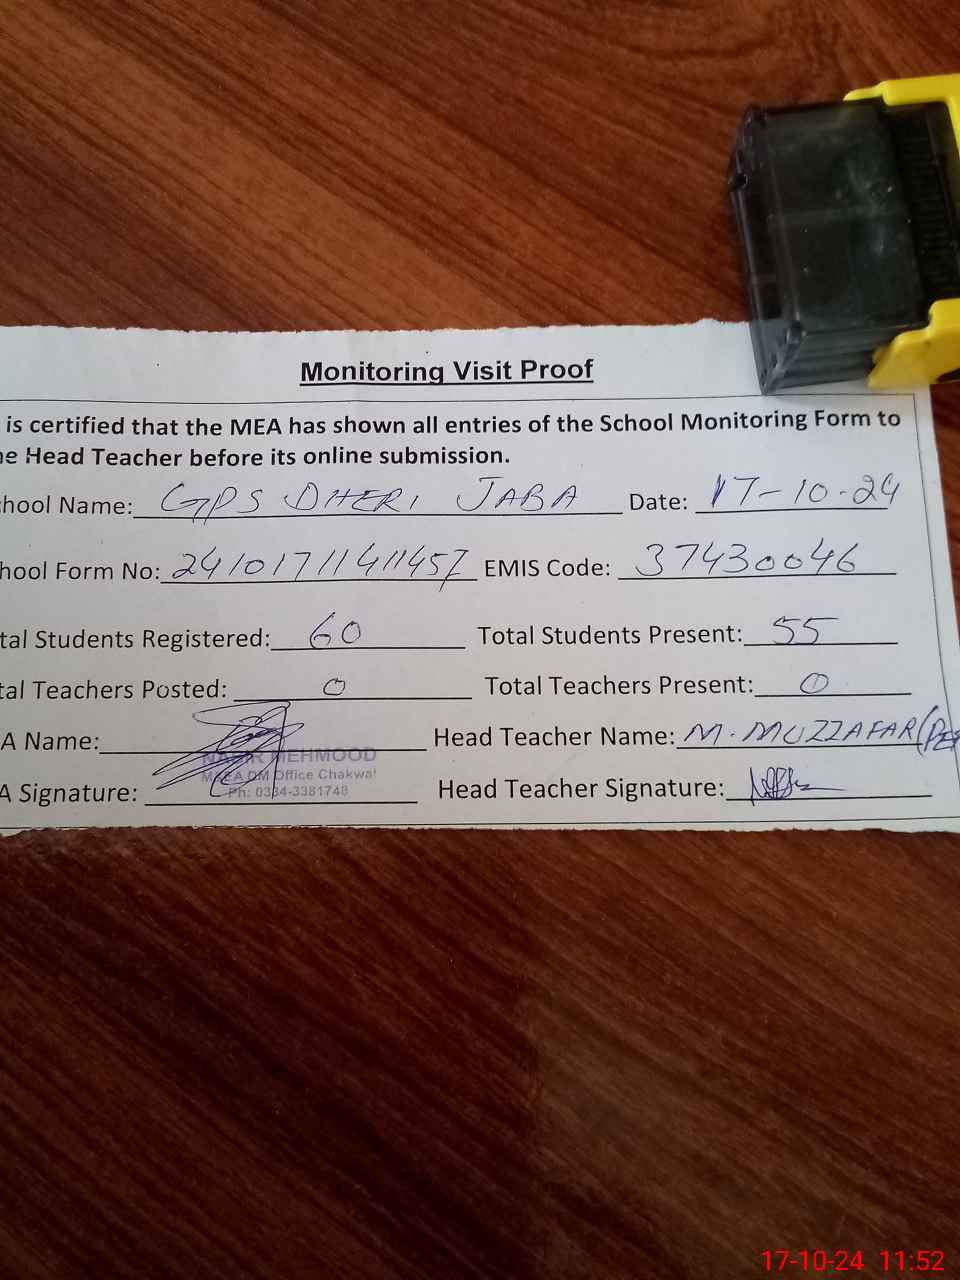 Monitoring Visit Proof
is certified that the MEA has shown all entries of the School Monitoring Form to
he Head Teacher before its online submission.
chool Name: GPS DHERI JABA Date: 17-10-24
hool Form No: EMIS Code: 37430046
tal Students Registered: 60 Total Students Present: 55
tal Teachers Posted: 0 Total Teachers Present: 0
A Name: Head Teacher Name: M. MUZZAFAR
MEHMOOD
DM Office Chakwal
A Signature: Head Teacher Signature:
Ph: 0334-3381748
17-10-24 11:52